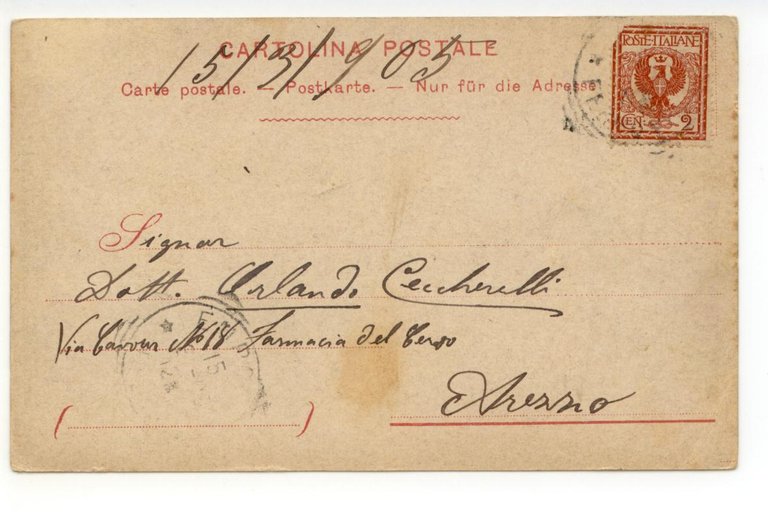 CARTOLINA POSTALE
15/3/905
Carte postale. — Postkarte. — Nur für die Adresse
POSTE·ITALIANE
CEN. 2
Signor
Dott. Orlando Ceccherelli
Via Cavour N° 18 Farmacia del Cervo
Arezzo
15